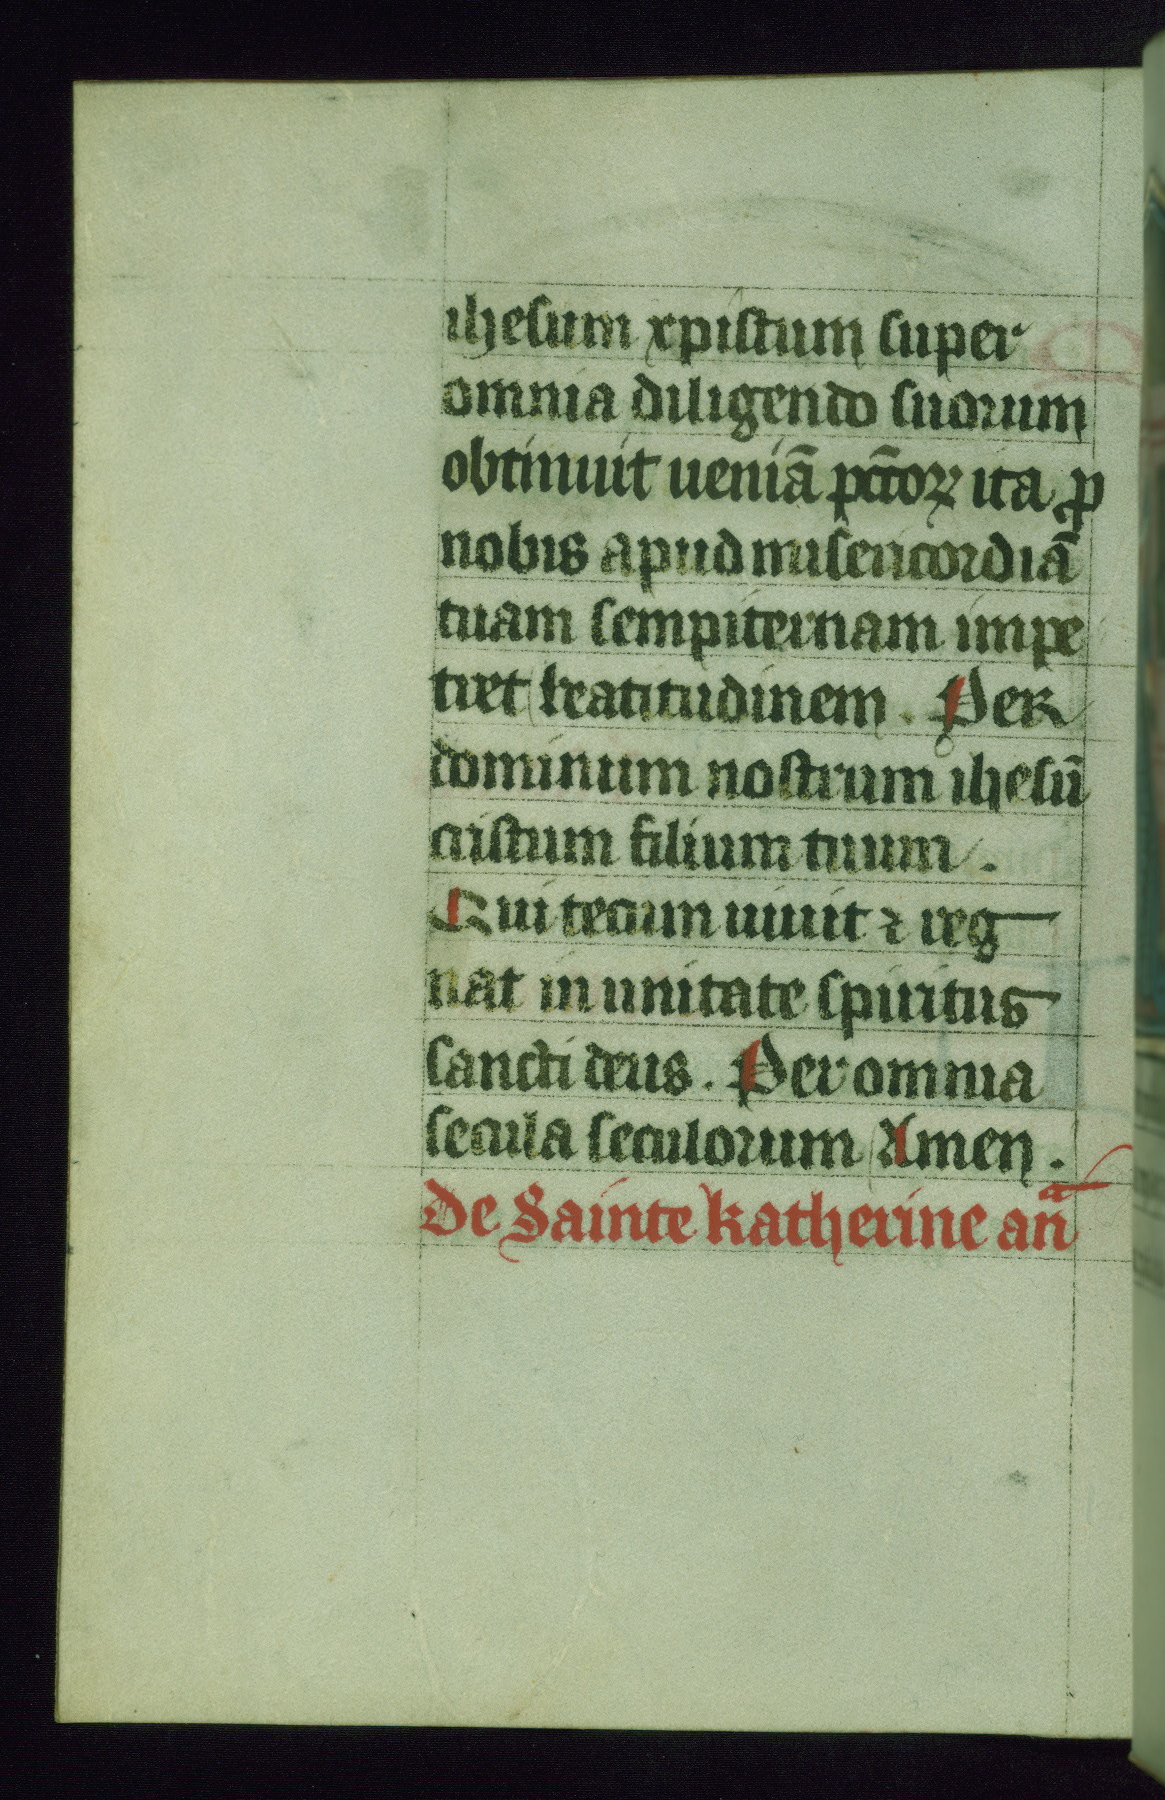 ihesum xpistum super
omnia diligendo suorum
obtinuit ueniã pctõꝝ ita ꝓ
nobis apud misericordiã
tuam sempiternam impe
tret beatitudinem. Per
dominum nostrum ihesũ
cristum filium tuum.
Qui tecum uiuit ⁊ reg
nat in unitate spiritus
sancti deus. Per omnia
secula seculorum Amen.
De Sainte katherine anᵃ